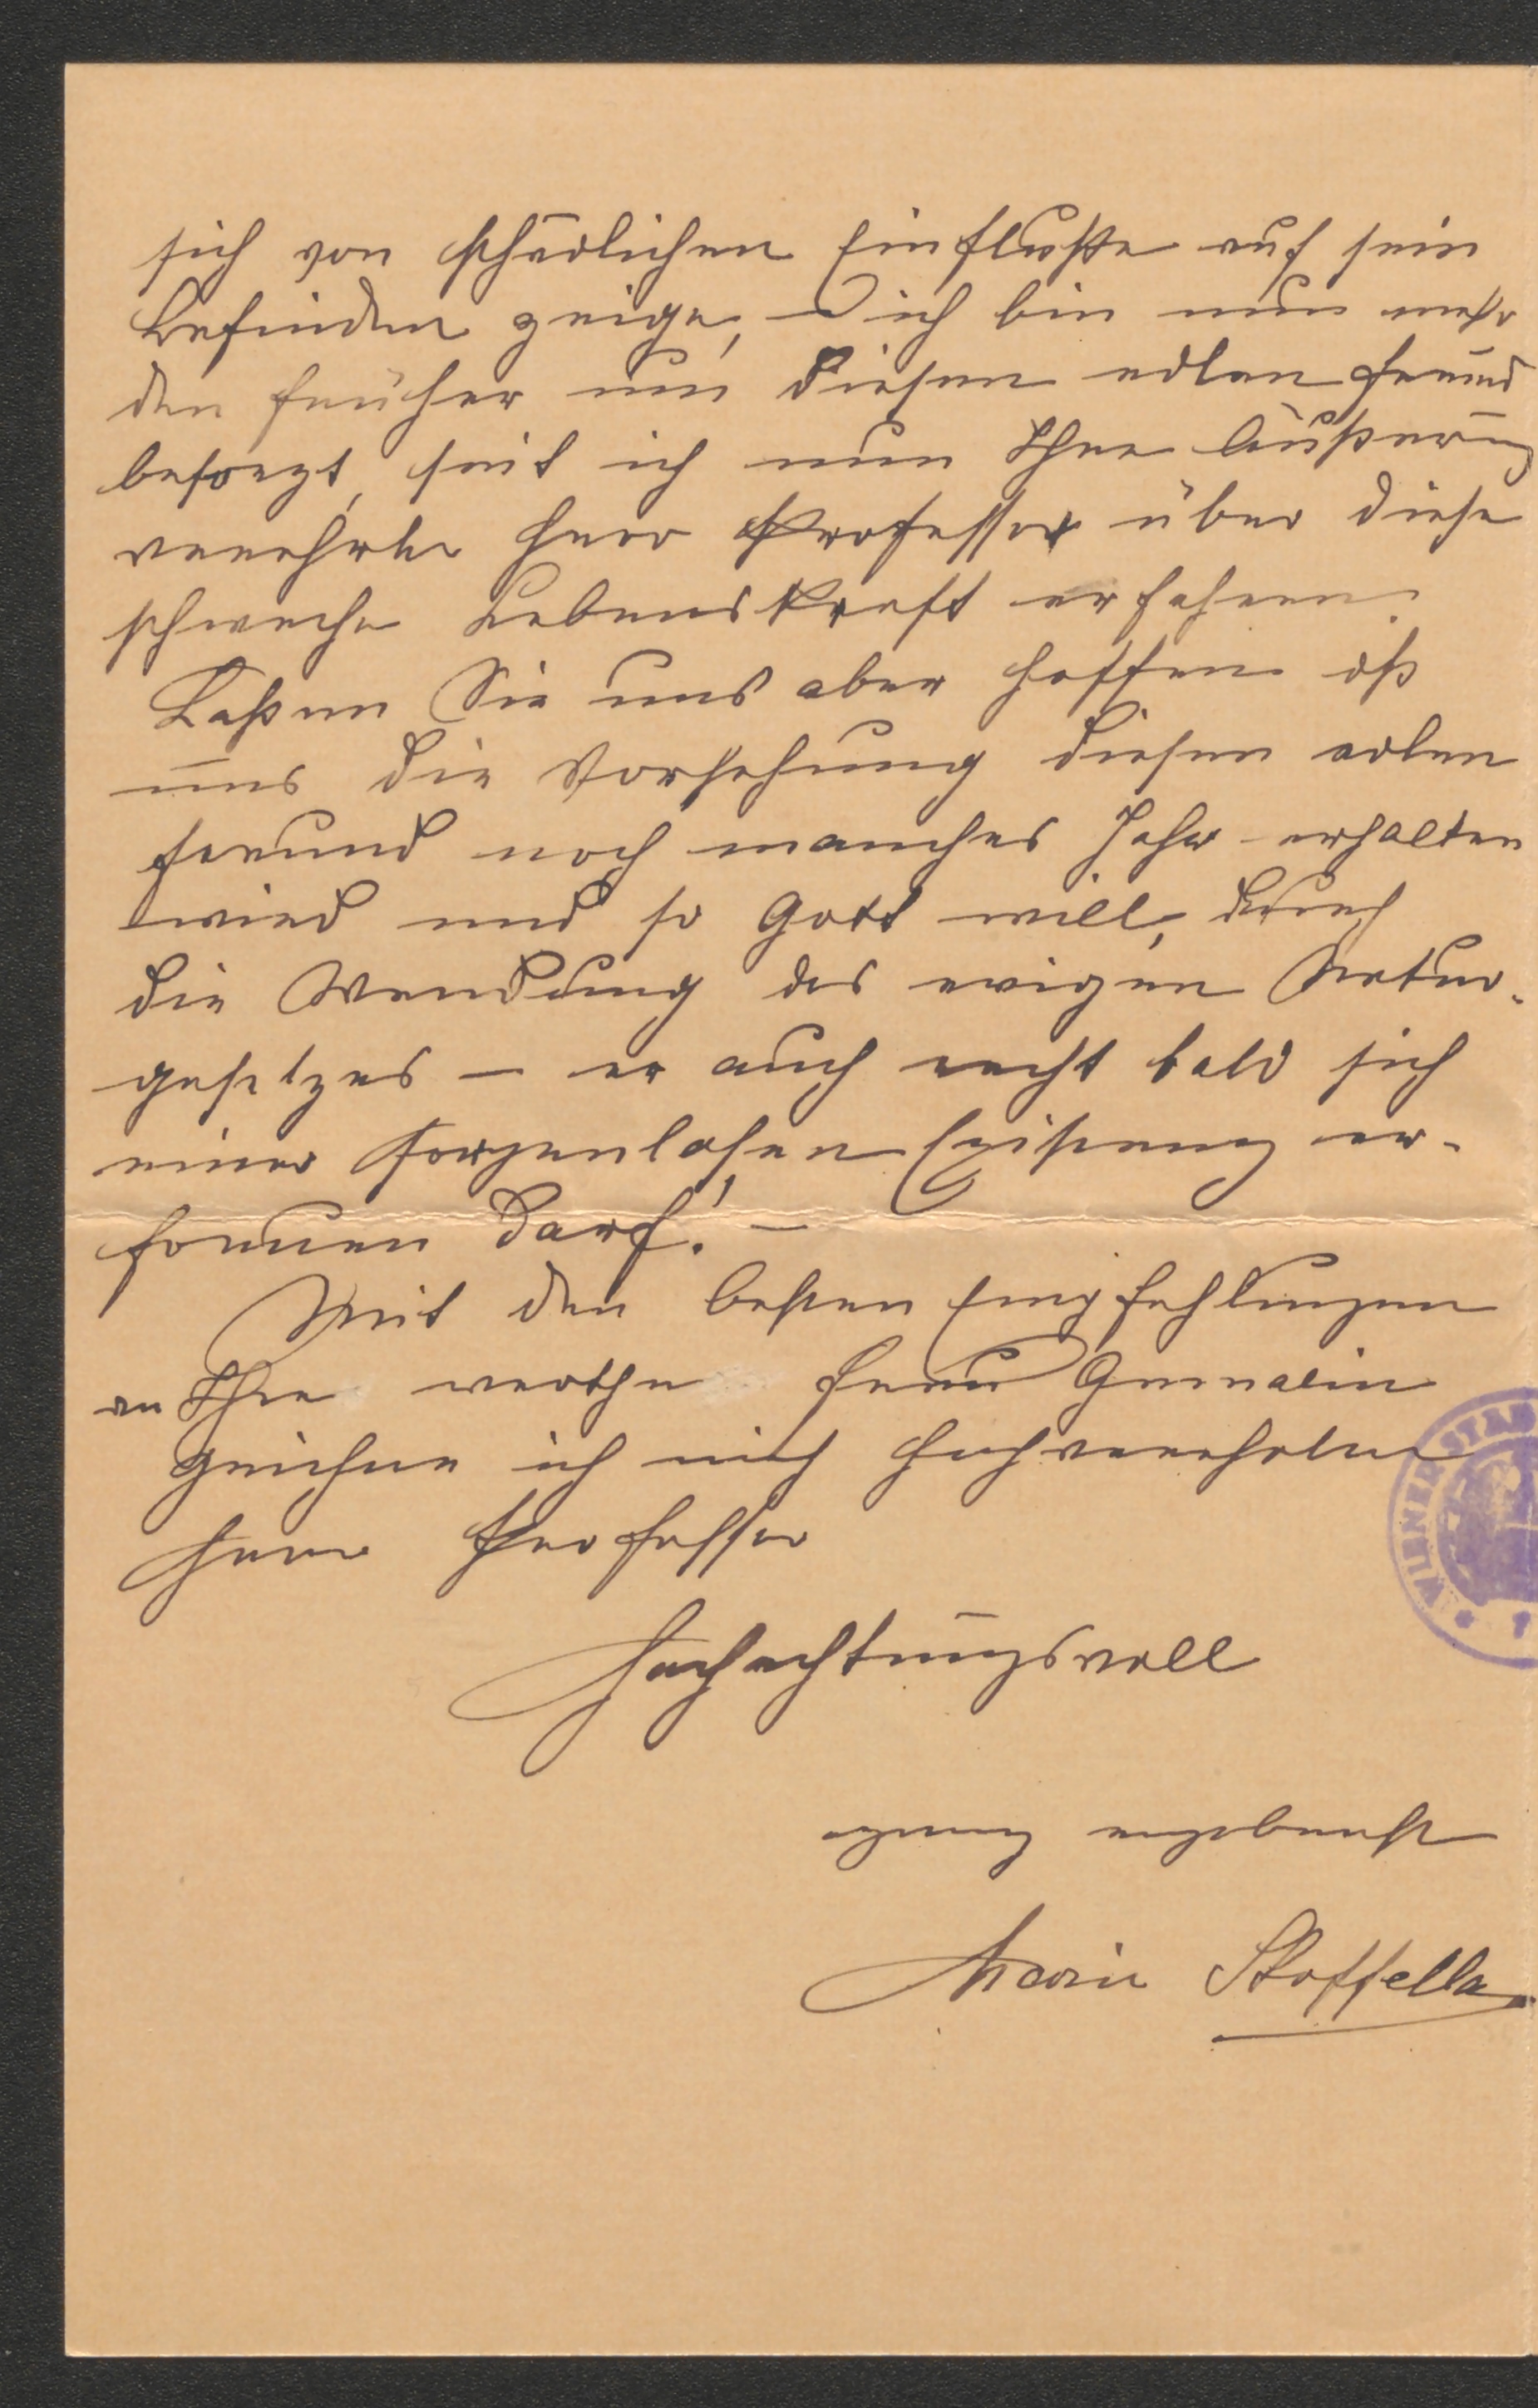 sich von schädlichen Einflusse auf sein
Befinden zeige, – ich bin nun mehr
den früher um diesen edlen Freund
besorgt, seit ich nun Ihre Äußerung
verehrter Herr Professor über diese
schwache Lebenskraft erfahren.
Laßen Sie uns aber hoffen dß
uns die Vorsehung diesen edlen
Freund noch manches Jahr erhalten
wird und so Gott will, durch
die Wendung des ewigen Natur-
gesetzes – er auch recht bald sich
einer sorgenlosen Existenz er-
freuen darf! –
Mit den besten Empfehlungen
an Ihre werthe Frau Gemalin
zeichne ich mich hochverehrter
Herr Professor
Hochachtungsvoll
ganz ergebenst
Marie Stoffella
WIENER STÄD